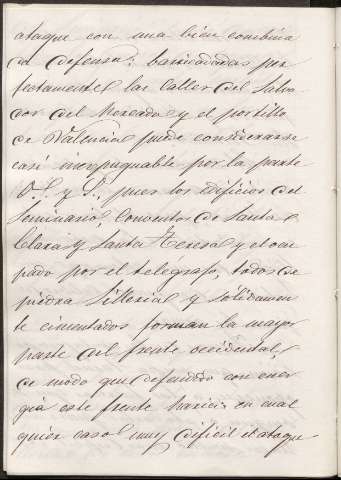 ataque con una bien combina
da defensa: barricadadas per
fectamente las calles del Salva
dor del Mercado y el portillo
de Valencia puede considerarse
casi inexpugnable por la parte
O. S. y S., pues los edificios del
Seminario, Conventos de Santa
Clara y Santa Teresa y el ocu
pado por el telégrafo, todos de
piedra silleria y solidamen
te cimentados forman la mayor
parte del frente occidental,
de modo que defendido con ener
gia este frente haria en cual
quier caso muy dificil el ataque